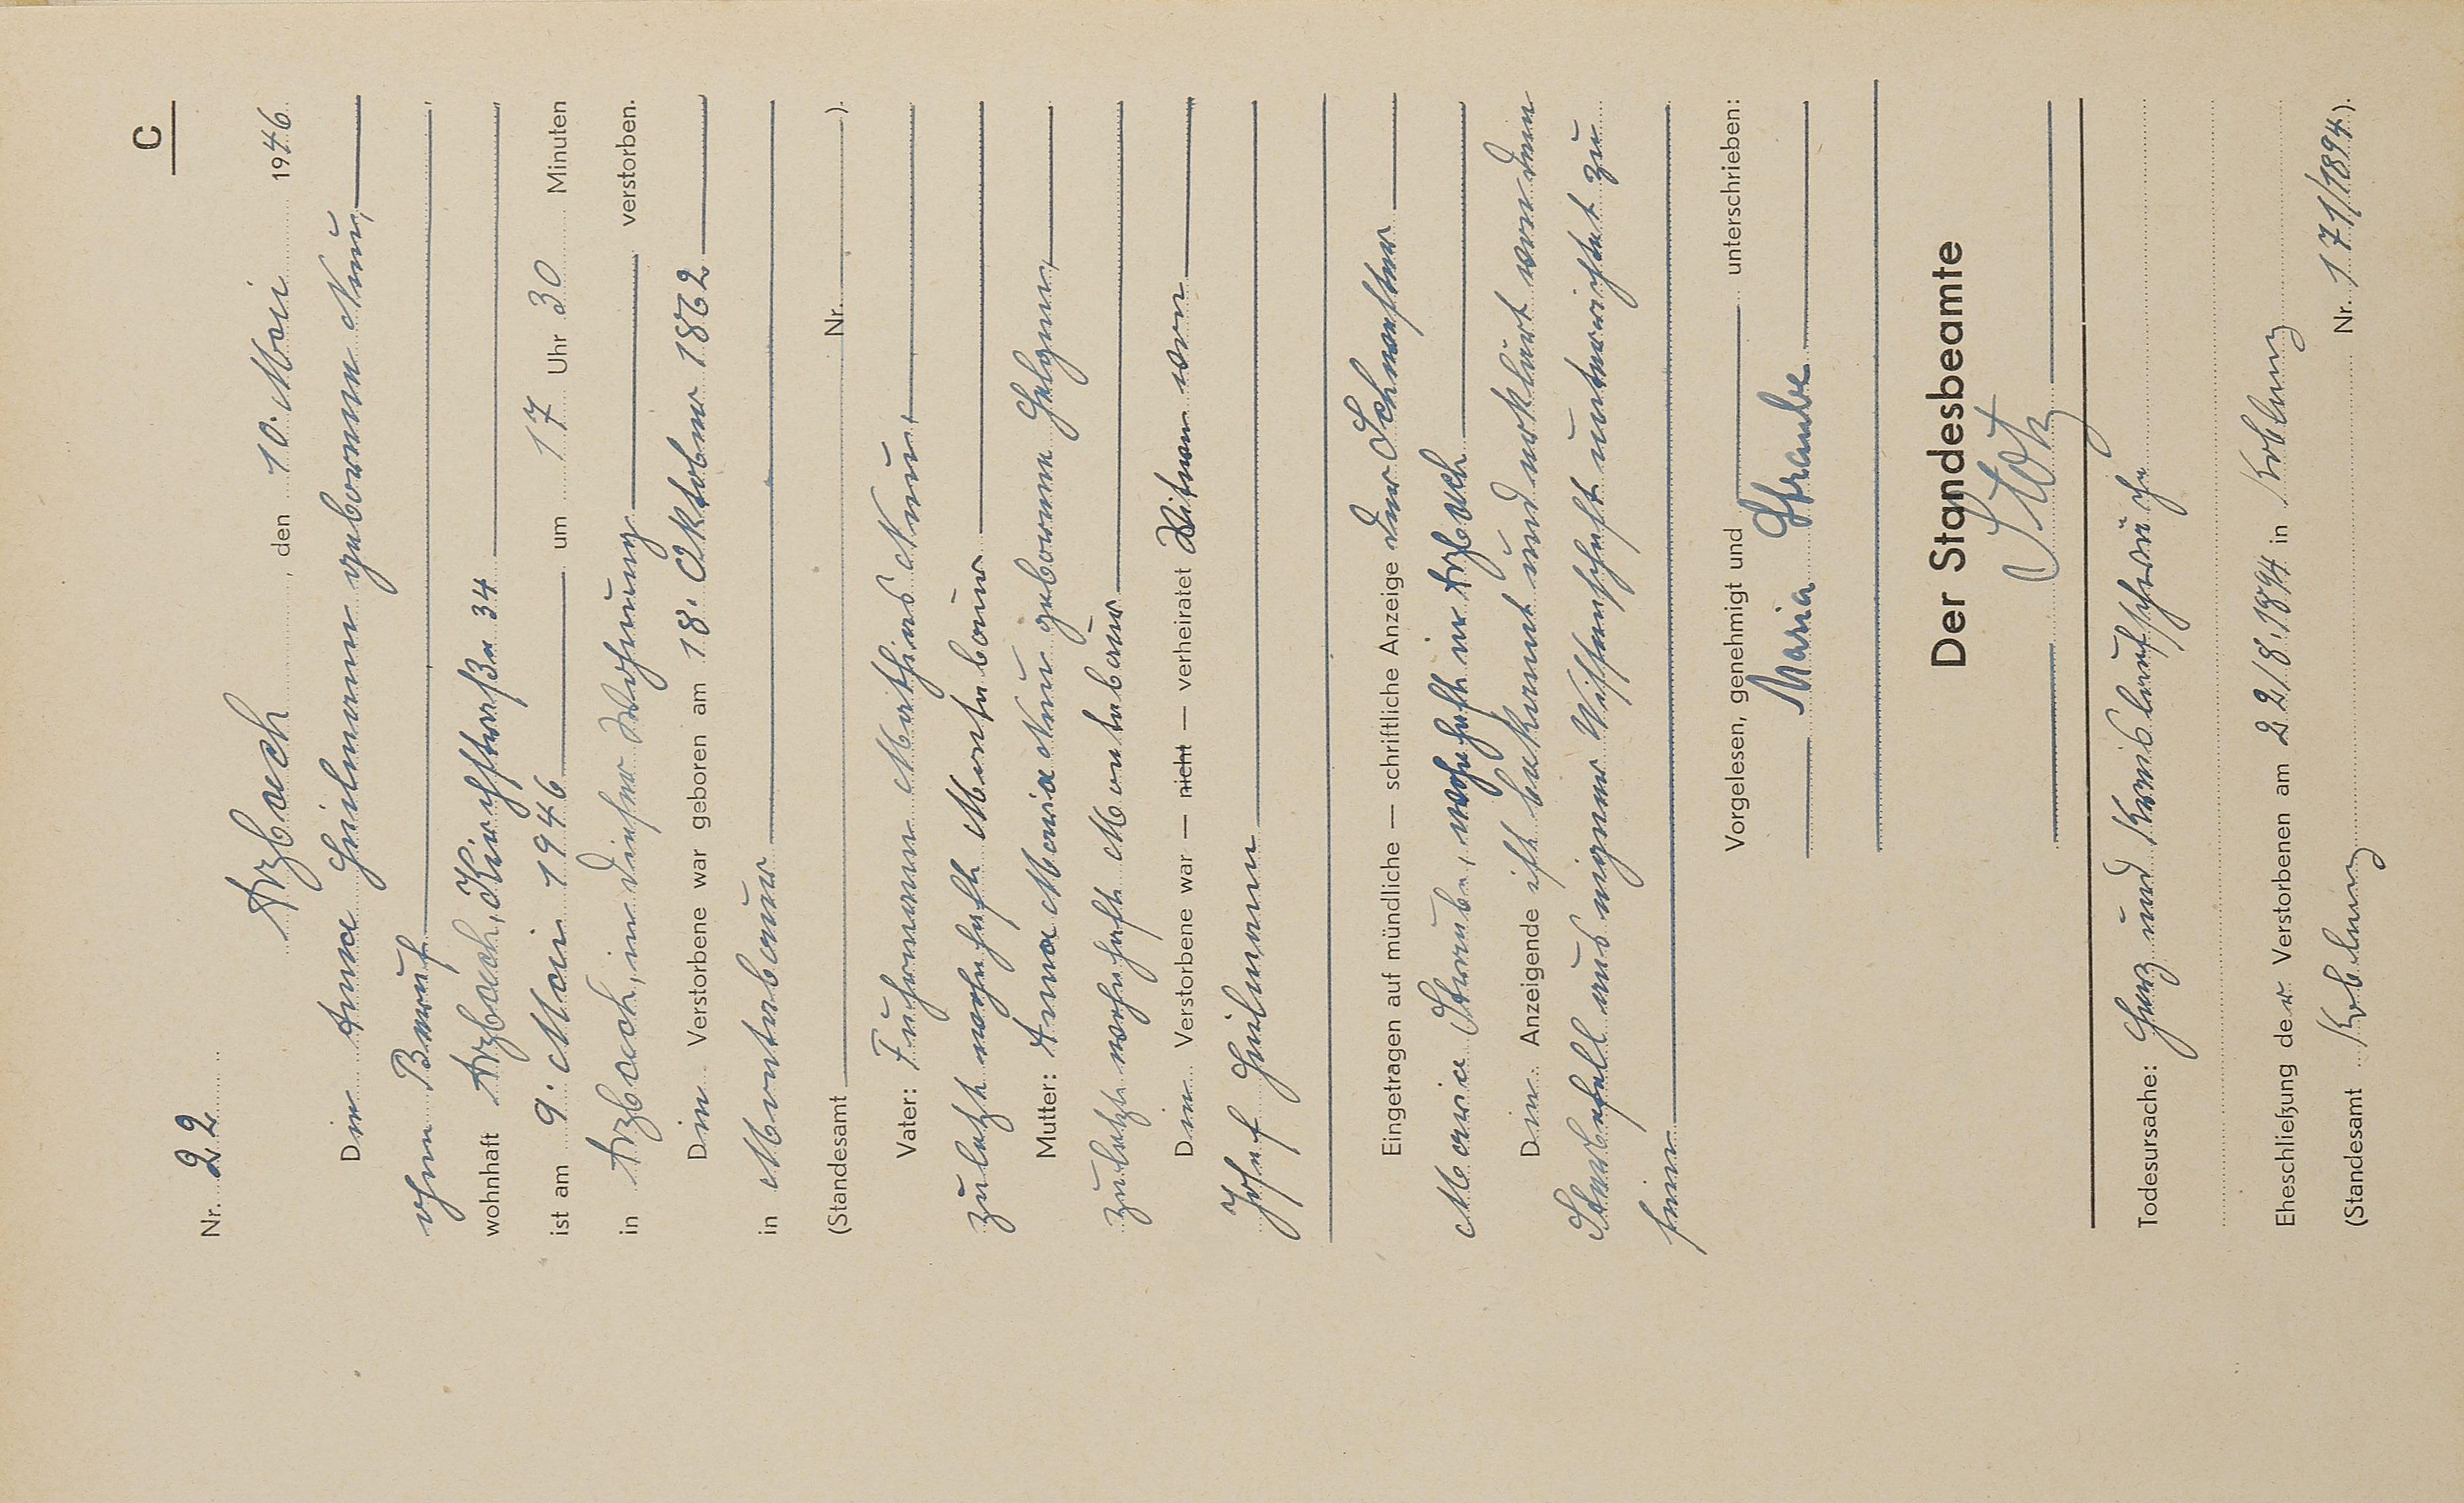 C
Nr. 22
Arzbach, den 10. Mai 1946
Die Anna Heilmann geborene Neu,
ohne Beruf,
wohnhaft Arzbach, Kirchstraße 34
ist am 9. Mai 1946 um 17 Uhr 30 Minuten
in Arzbach, in dieser Wohnung verstorben.
Die Verstorbene war geboren am 18. Oktober 1862
in Montabaur
(Standesamt Nr. ).
Vater: Fuhrmann Mathias Neu,
zuletzt wohnhaft Montabaur
Mutter: Anna Maria Neu geborene
zuletzt wohnhaft Montabaur
Die Verstorbene war — nicht — verheiratet Witwe von
Josef Heilmann
Eingetragen auf mündliche — schriftliche Anzeige der Schwester
Maria Straube, wohnhaft in Arzbach
Die Anzeigende ist bekannt und erklärt von dem
Sterbefall aus eigener Wissenschaft unterrichtet zu
sein.
Vorgelesen, genehmigt und unterschrieben:
Maria Straube
Der Standesbeamte
Stotz
Todesursache: Herz und Kreislaufschwäche
Eheschließung der Verstorbenen am 22/8.1894 in Koblenz
(Standesamt Koblenz Nr. 171/1894).